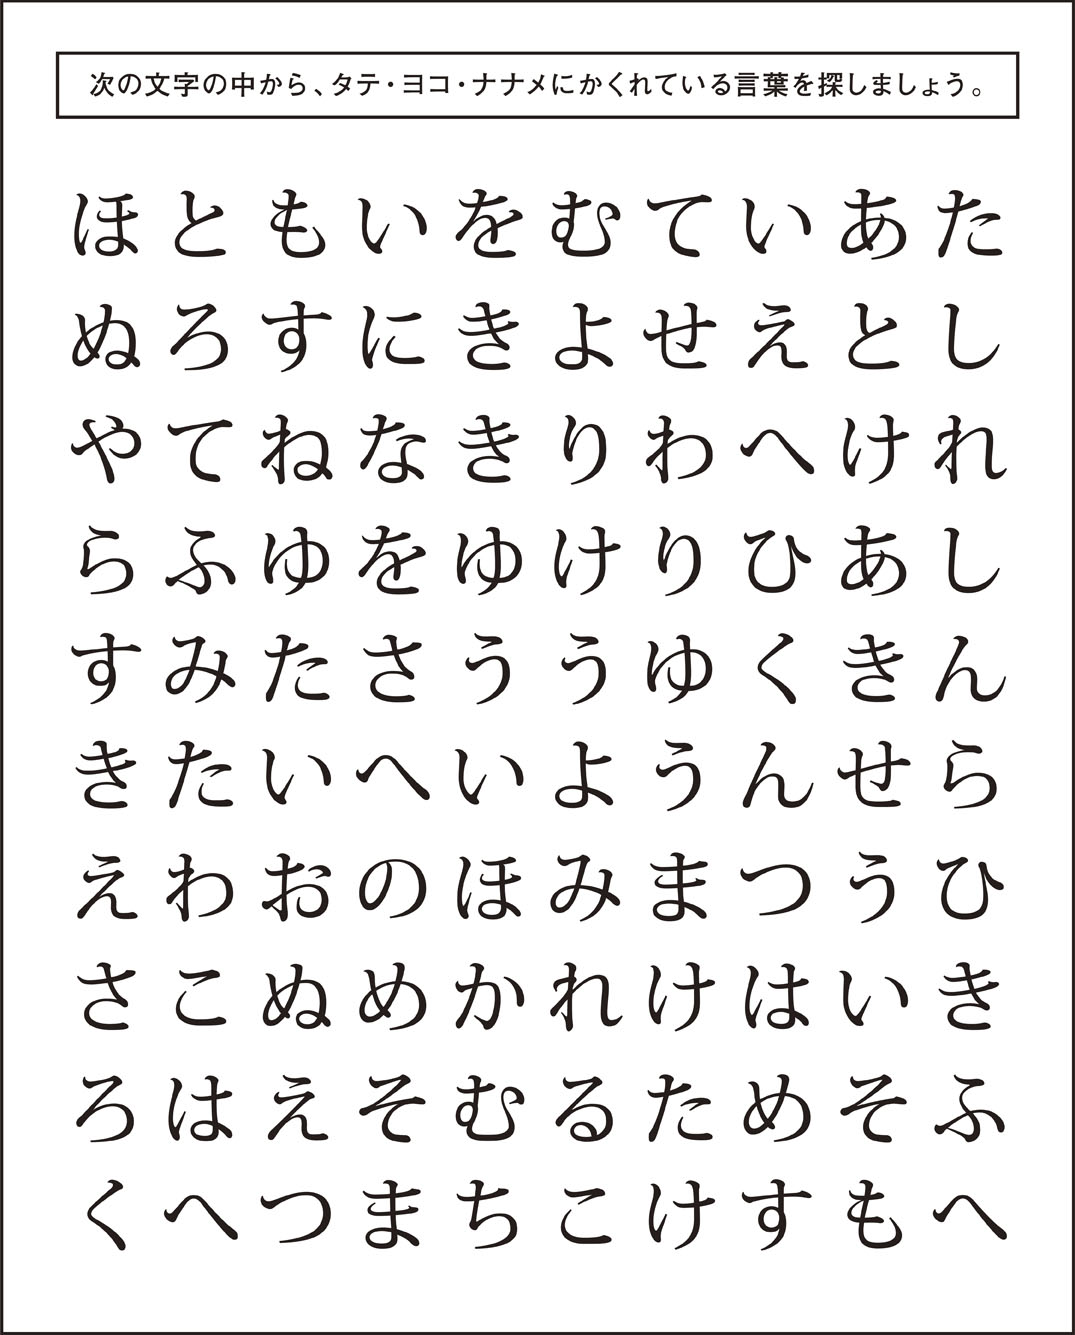 次の文字の中から、タテ・ヨコ・ナナメにかくれている言葉を探しましょう。
ほともいをむていあた
ぬろすにきよせえとし
やてねなきりわへけれ
らふゆをゆけりひあし
すみたさううゆくきん
きたいへいようんせら
えわおのほみまつうひ
さこぬめかれけはいき
ろはえそむるためそふ
くへつまちこけすもへ